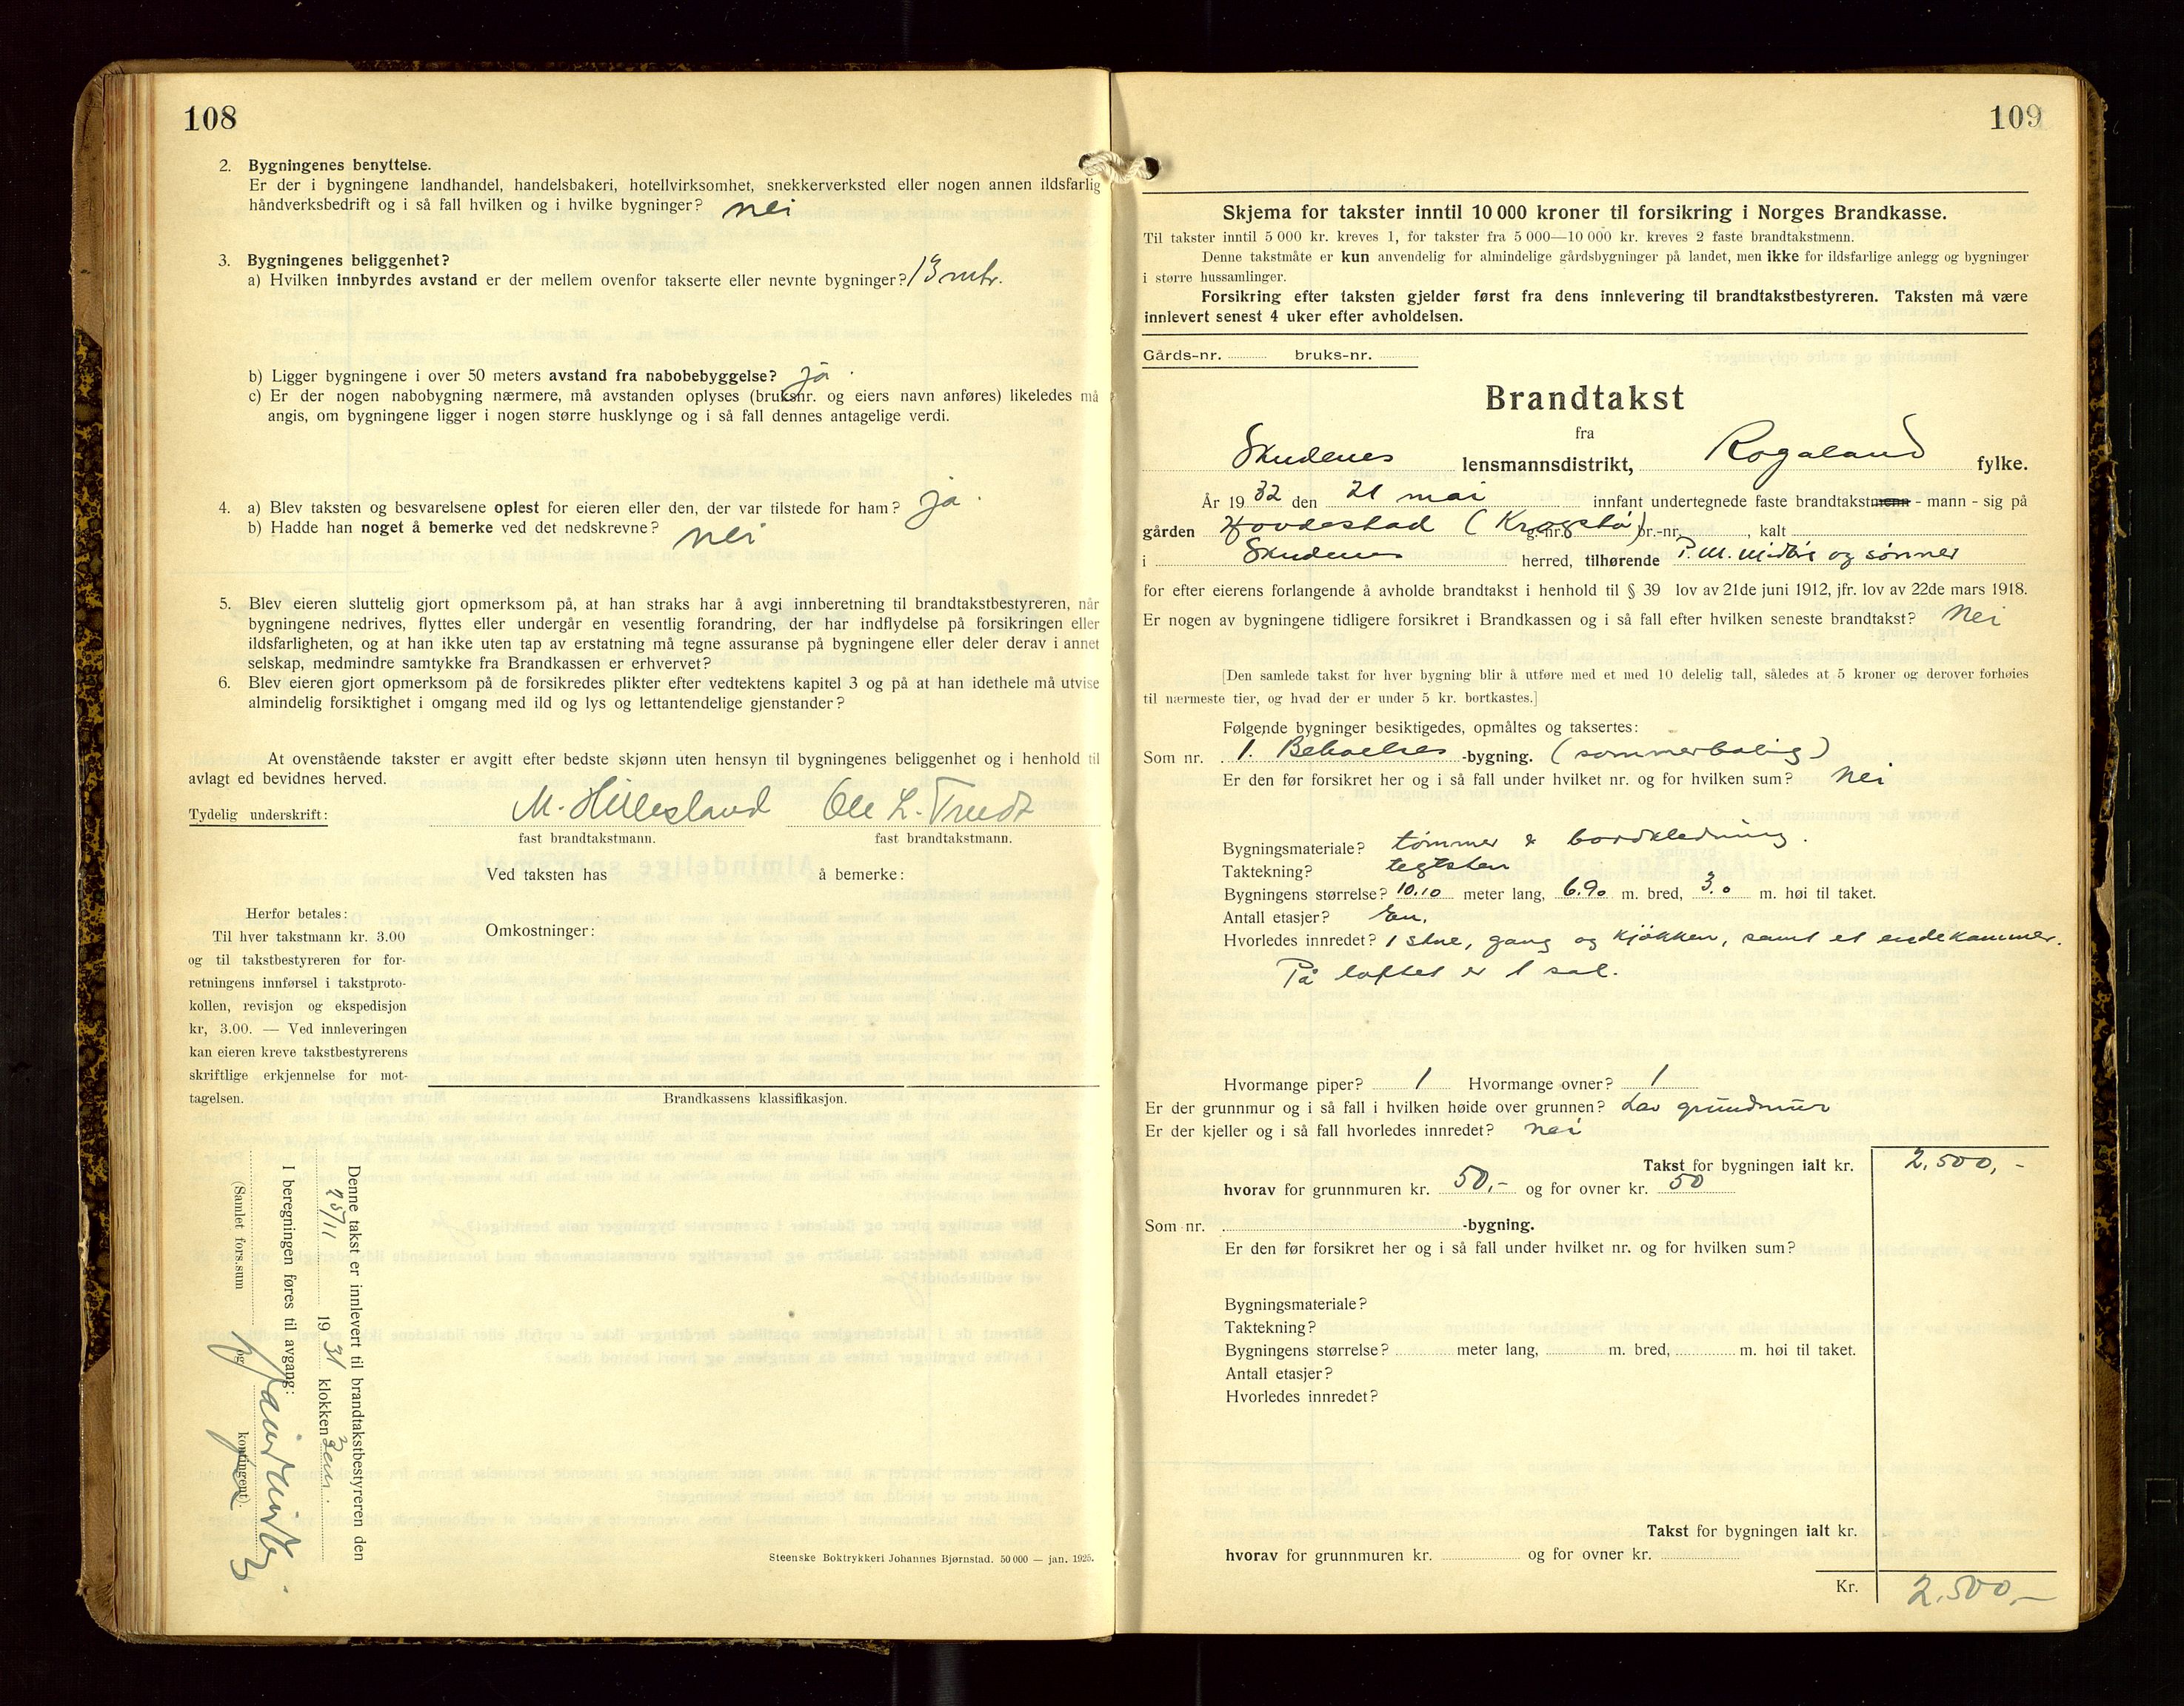 108
2. Bygningenes benyttelse.
Er der i bygningene landhandel, handelsbakeri, hotellvirksomhet, snekkerverksted eller nogen annen ildsfarlig
håndverksbedrift og i så fall hvilken og i hvilke bygninger? nei
3. Bygningenes beliggenhet?
a) Hvilken innbyrdes avstand er der mellem ovenfor takserte eller nevnte bygninger? 13 mtr.
b) Ligger bygningene i over 50 meters avstand fra nabobebyggelse? ja.
c) Er der nogen nabobygning nærmere, må avstanden oplyses (bruksnr. og eiers navn anføres) likeledes må
angis, om bygningene ligger i nogen større husklynge og i så fall dennes antagelige verdi.
4. a) Blev taksten og besvarelsene oplest for eieren eller den, der var tilstede for ham? ja.
b) Hadde han noget å bemerke ved det nedskrevne? nei
5. Blev eieren sluttelig gjort opmerksom på, at han straks har å avgi innberetning til brandtakstbestyreren, når
bygningene nedrives, flyttes eller undergår en vesentlig forandring, der har indflydelse på forsikringen eller
ildsfarligheten, og at han ikke uten tap av erstatning må tegne assuranse på bygningene eller deler derav i annet
selskap, medmindre samtykke fra Brandkassen er erhvervet?
6. Blev eieren gjort opmerksom på de forsikredes plikter efter vedtektens kapitel 3 og på at han idethele må utvise
almindelig forsiktighet i omgang med ild og lys og lettantendelige gjenstander?
At ovenstående takster er avgitt efter bedste skjønn uten hensyn til bygningenes beliggenhet og i henhold til
avlagt ed bevidnes herved.
Tydelig underskrift: M. Hillesland Ole L. Tvedt
fast brandtakstmann. fast brandtakstmann.
Ved taksten has å bemerke:
Herfor betales:
Til hver takstmann kr. 3.00
og til takstbestyreren for for-
retningens innførsel i takstproto-
kollen, revisjon og ekspedisjon
kr, 3.00. — Ved innleveringen
kan eieren kreve takstbestyrerens
skriftlige erkjennelse for mot-
tagelsen.
Omkostninger:
Brandkassens klassifikasjon.
Denne takst er innlevert til brandtakstbestyreren den
25/11 1931 klokken 3 em.
I beregningen føres til avgang:
(Samlet fors.sum og kontingent).
Steenske Boktrykkeri Johannes Bjørnstad. 50 000 — jan. 1925.
109
Skjema for takster inntil 10 000 kroner til forsikring i Norges Brandkasse.
Til takster inntil 5 000 kr. kreves 1, for takster fra 5 000—10 000 kr. kreves 2 faste brandtakstmenn.
Denne takstmåte er kun anvendelig for almindelige gårdsbygninger på landet, men ikke for ildsfarlige anlegg og bygninger
i større hussamlinger.
Forsikring efter taksten gjelder først fra dens innlevering til brandtakstbestyreren. Taksten må være
innlevert senest 4 uker efter avholdelsen.
Gårds-nr. bruks-nr.
Brandtakst
fra
Skudenes lensmannsdistrikt, Rogaland fylke.
År 1932 den 21 mai innfant undertegnede faste brandtakstmenn - mann - sig på
gården Hovdestad (Krogstø) g.-nr. br.-nr. , kalt
i Skudenes herred, tilhørende P. M. Midbøe og sønner
for efter eierens forlangende å avholde brandtakst i henhold til § 39 lov av 21de juni 1912, jfr. lov av 22de mars 1918.
Er nogen av bygningene tidligere forsikret i Brandkassen og i så fall efter hvilken seneste brandtakst? Nei
[Den samlede takst for hver bygning blir å utføre med et med 10 delelig tall, således at 5 kroner og derover forhøies
til nærmeste tier, og hvad der er under 5 kr. bortkastes.]
Følgende bygninger besiktigedes, opmåltes og taksertes:
Som nr. 1. Beboelses -bygning. (sommerbolig)
Er den før forsikret her og i så fall under hvilket nr. og for hvilken sum? Nei
Bygningsmateriale? tømmer & bordkledning.
Taktekning? teglsten
Bygningens størrelse? 10.10 meter lang, 6.90 m. bred, 3.0 m. høi til taket.
Antall etasjer? En.
Hvorledes innredet? 1 stue, gang og kjøkken, samt et endekammer.
På loftet er 1 sal.
Hvormange piper? 1 Hvormange ovner? 1
Er der grunnmur og i så fall i hvilken høide over grunnen? Lav grundmur
Er der kjeller og i så fall hvorledes innredet? nei
Takst for bygningen ialt kr. 2.500,-
hvorav for grunnmuren kr. 50,- og for ovner kr. 50
Som nr. -bygning.
Er den før forsikret her og i så fall under hvilket nr. og for hvilken sum?
Bygningsmateriale?
Taktekning?
Bygningens størrelse? meter lang, m. bred, m. høi til taket.
Antall etasjer?
Hvorledes innredet?
Takst for bygningen ialt kr.
hvorav for grunnmuren kr. og for ovner kr.
Kr. 2.500,-